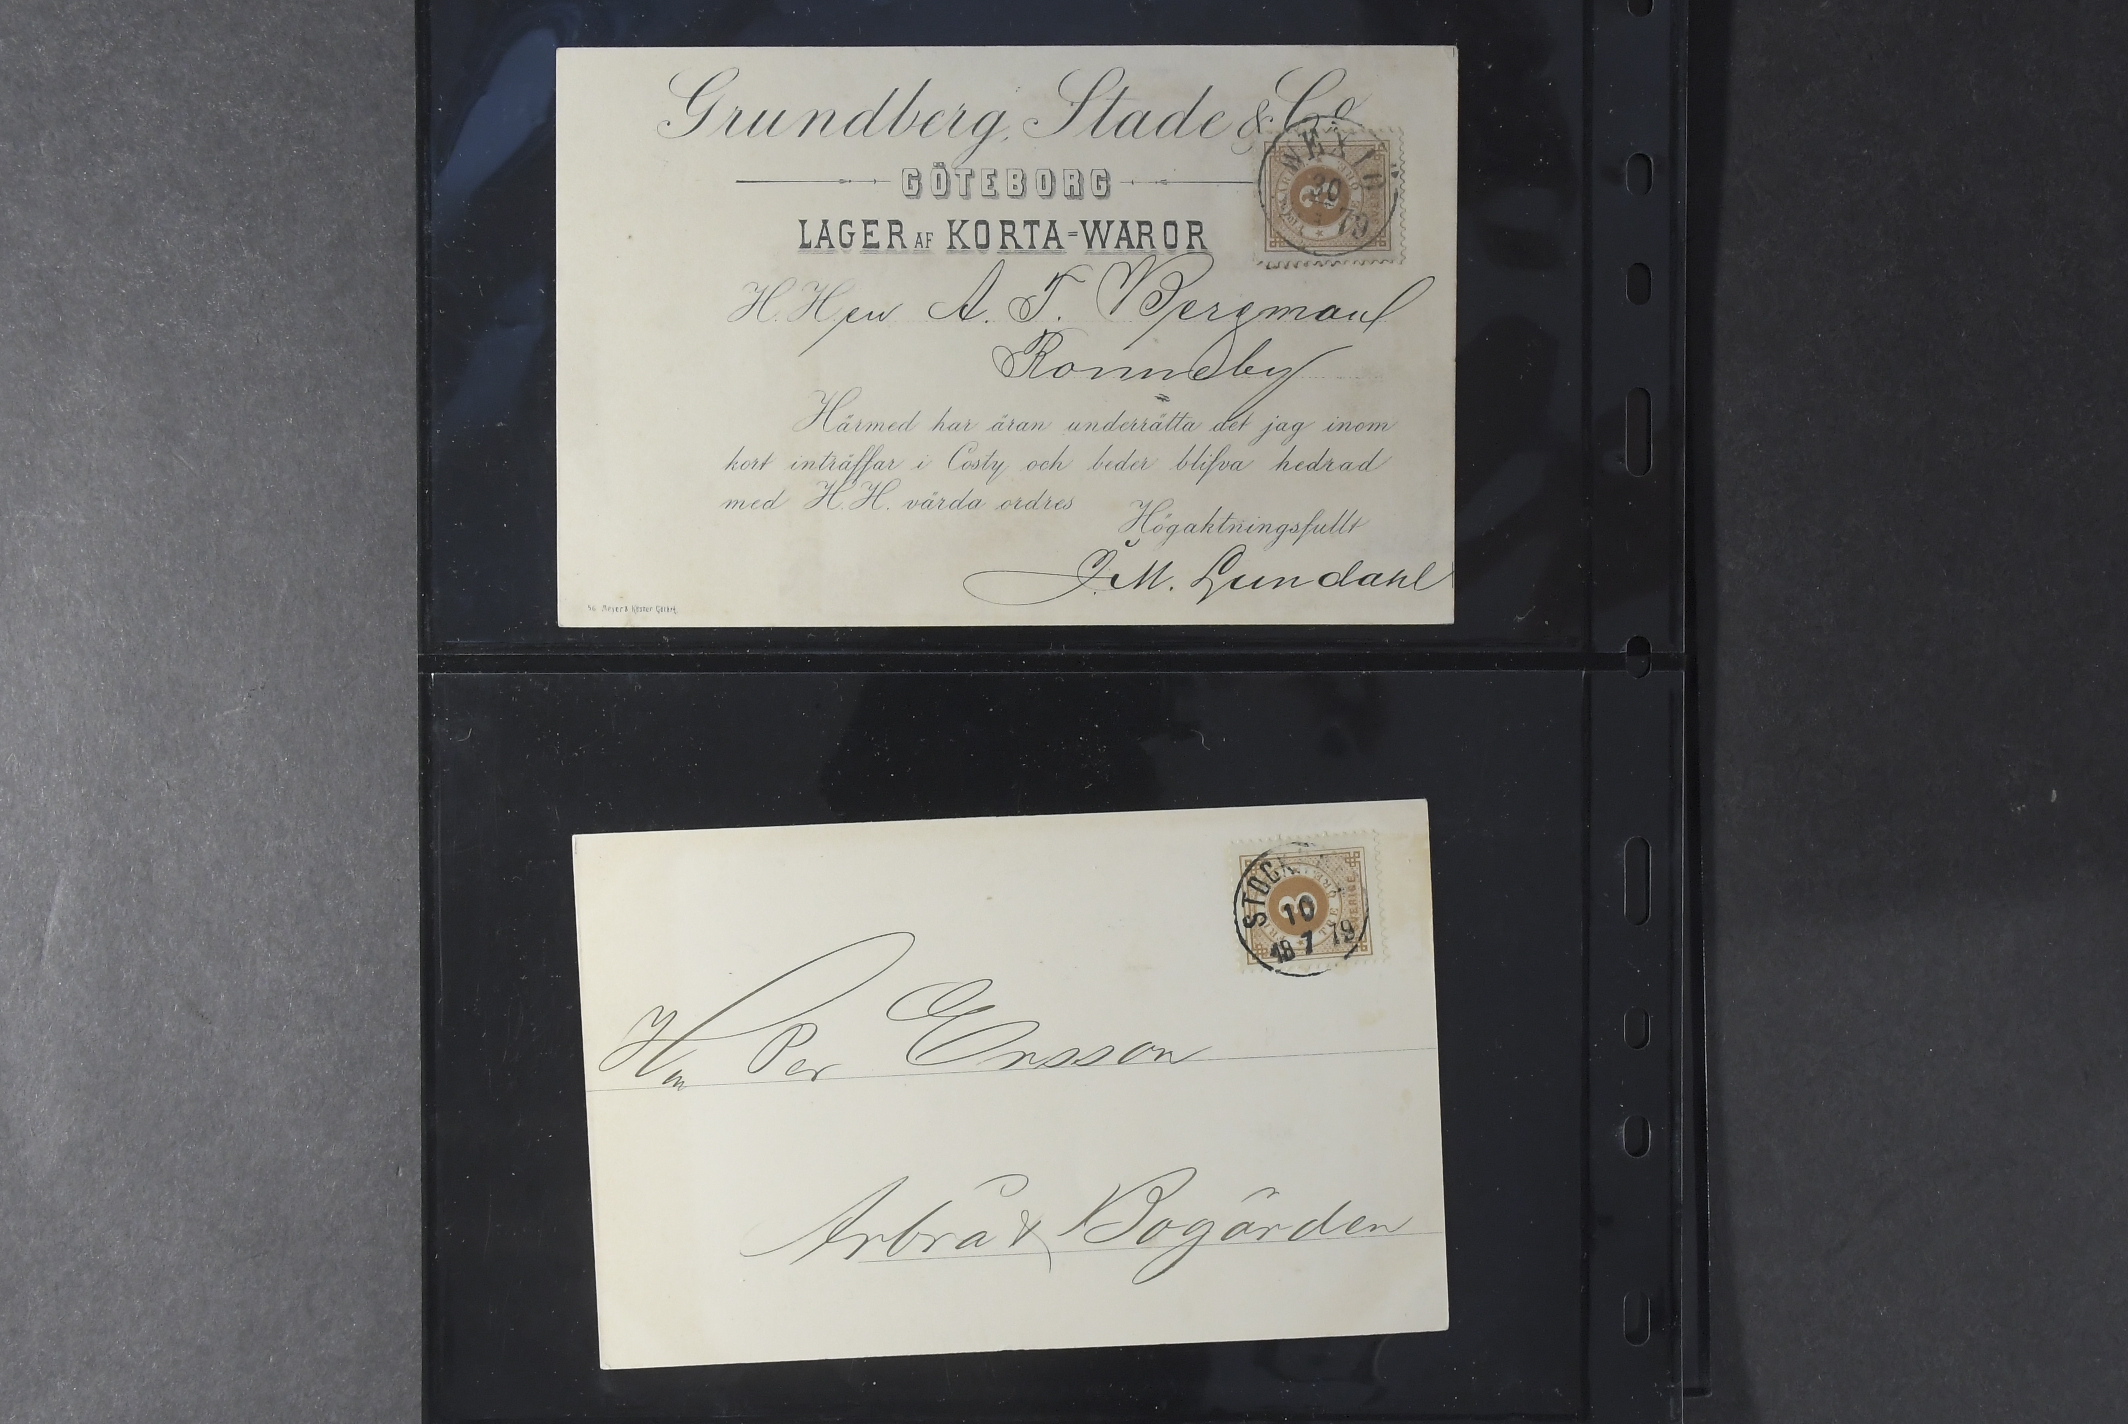 Grundberg, Stade & Co
GÖTEBORG
LAGER AF KORTA-WAROR
WEXIÖ
20
79
3
H. Herr A. F. Bergman
Ronneby
Härmed har äran underrätta det jag inom
kort inträffar i Costy och beder blifva hedrad
med H.H. värda ordres
Högaktningsfullt
J.M. Lundahl
STOCK
10
18 7 79
3
TRE
SVERIGE
Hrr Per Ersson
Arbrå & Bogården